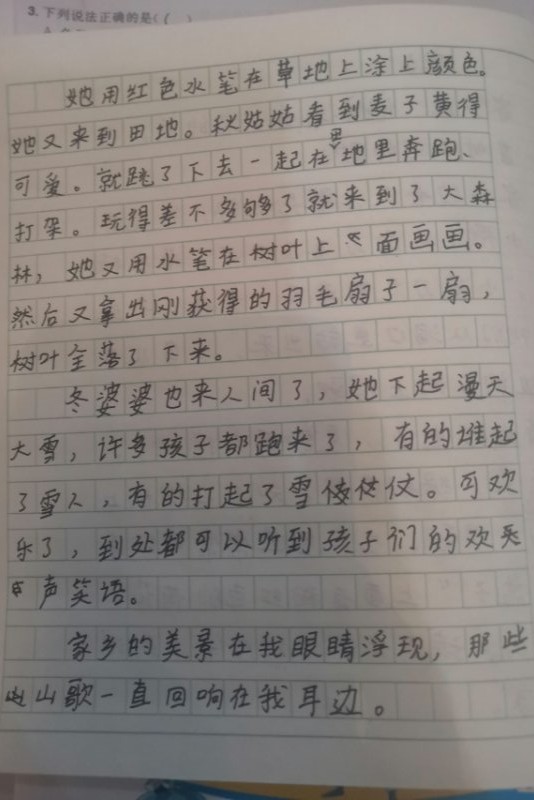 3. 下列说法正确的是( (
她用红色水笔在草地上涂上颜色。
她又来到田地。秋姑姑看到麦子黄得
可爱。就跳了下去一起在地里奔跑、
打架。玩得差不多够了就来到了大森
林，她又用水笔在树叶上面画画。
然后又拿出刚获得的羽毛扇子一扇，
树叶全落了下来。
冬婆婆也来人间了，她下起漫天
大雪，许多孩子都跑来了，有的堆起
了雪人，有的打起了雪仗。可欢
乐了，到处都可以听到孩子们的欢
声笑语。
家乡的美景在我眼睛浮现，那些
山歌一直回响在我耳边。